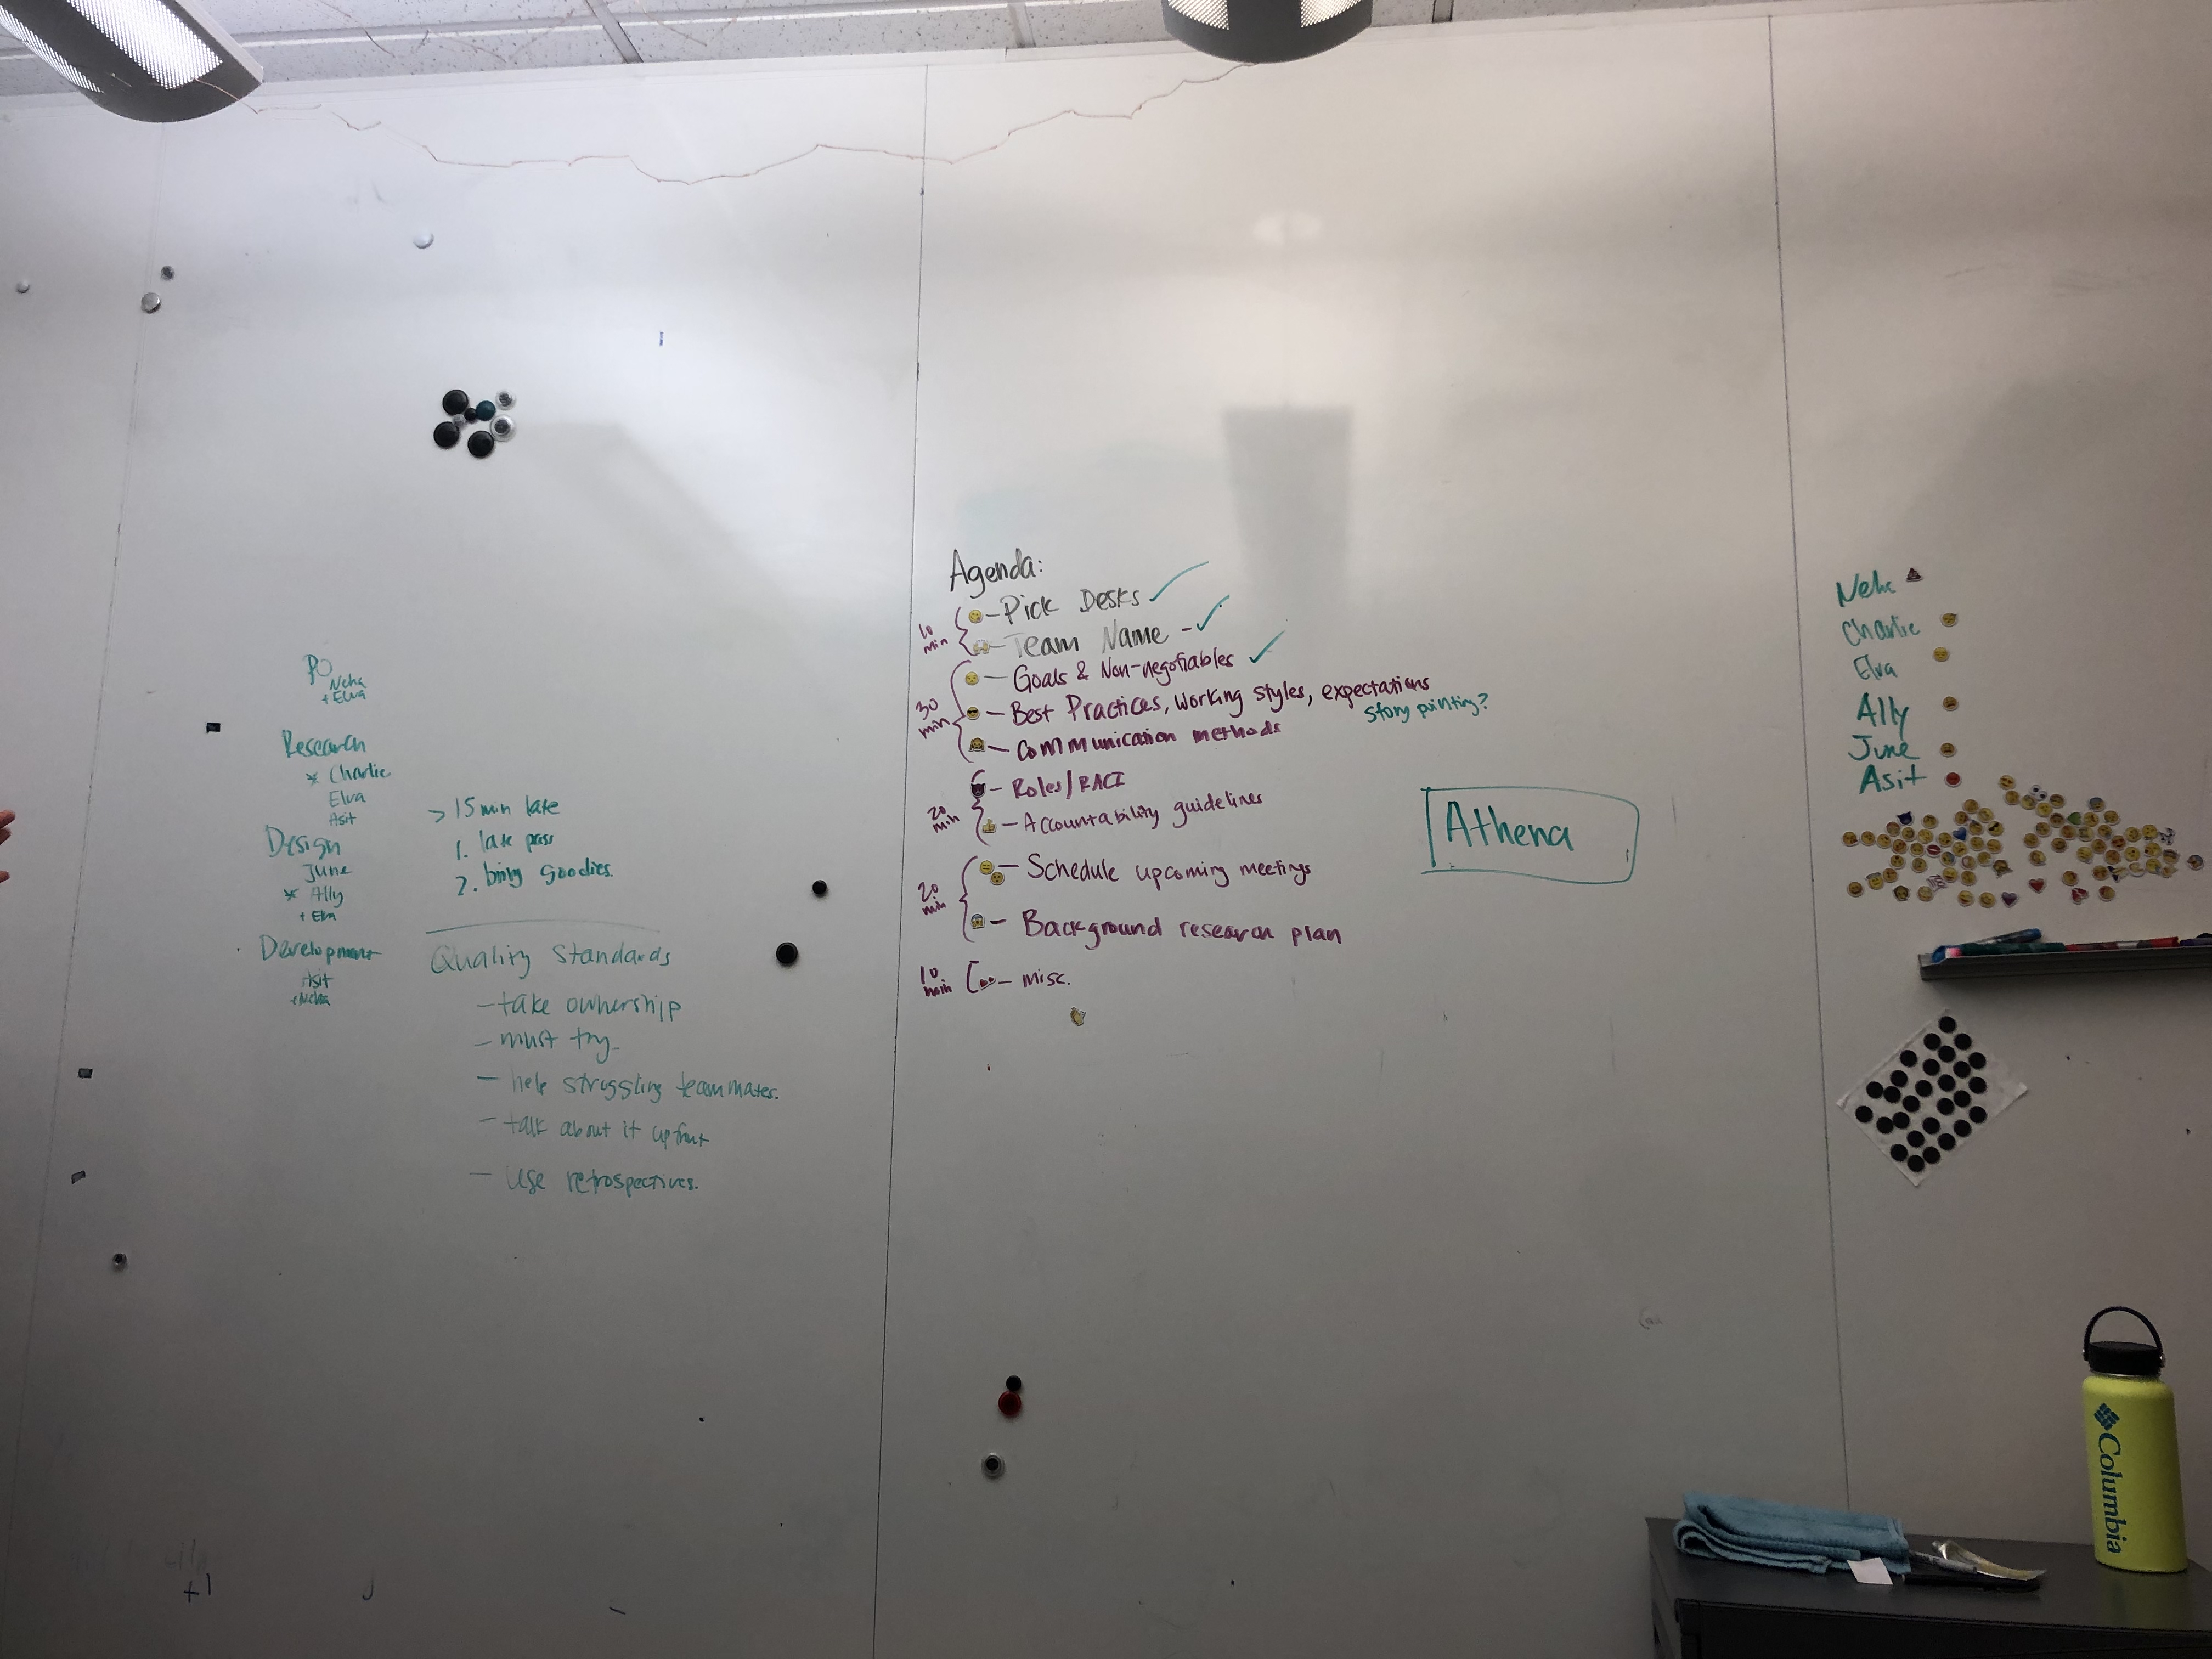 PO
Neha
+ Elva
Research
* Charlie
Elva
Asit
Design
June
* Ally
+ Elva
Development
Asit
+Neha
> 15 min late
1. late pass
2. bring goodies.
Quality Standards
- take ownership
- must try
- help struggling teammates.
- talk about it upfront
- Use retrospectives.
+1
Agenda:
10 min
- Pick Desks ✓
- Team Name - ✓
30 min
- Goals & Non-negotiables ✓
- Best Practices, Working styles, expectations
story pointing?
- Communication methods
20 min
- Roles/RACI
- Accountability guidelines
20 min
- Schedule upcoming meetings
- Background research plan
10 min
- misc.
Athena
Neha
Charlie
Elva
Ally
June
Asit
Columbia